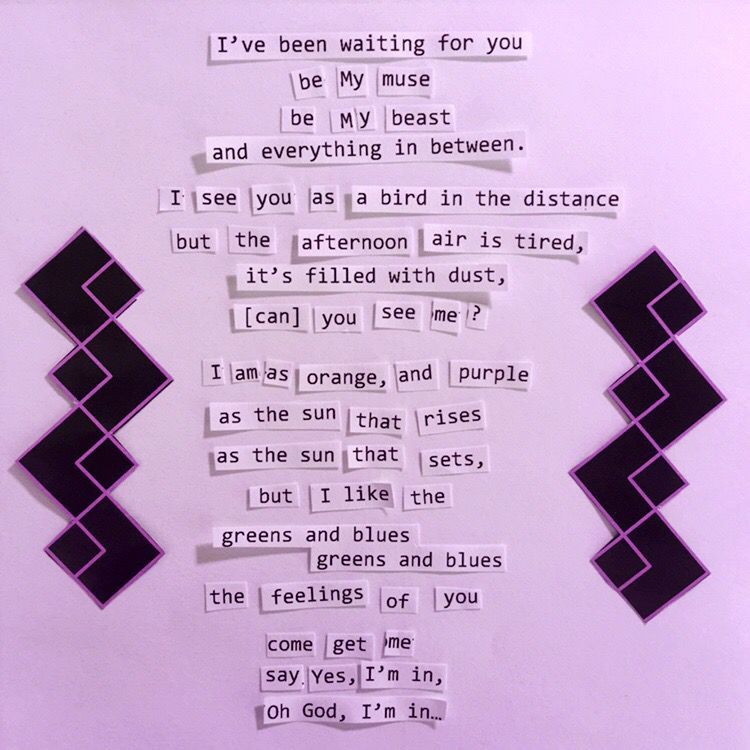 I've been waiting for you
be My muse
be My beast
and everything in between.
I see you as a bird in the distance
but the afternoon air is tired,
it's filled with dust,
[can] you see me ?
I am as orange, and purple
as the sun that rises
as the sun that sets,
but I like the
greens and blues
greens and blues
the feelings of you
come get me
say Yes, I'm in,
Oh God, I'm in…